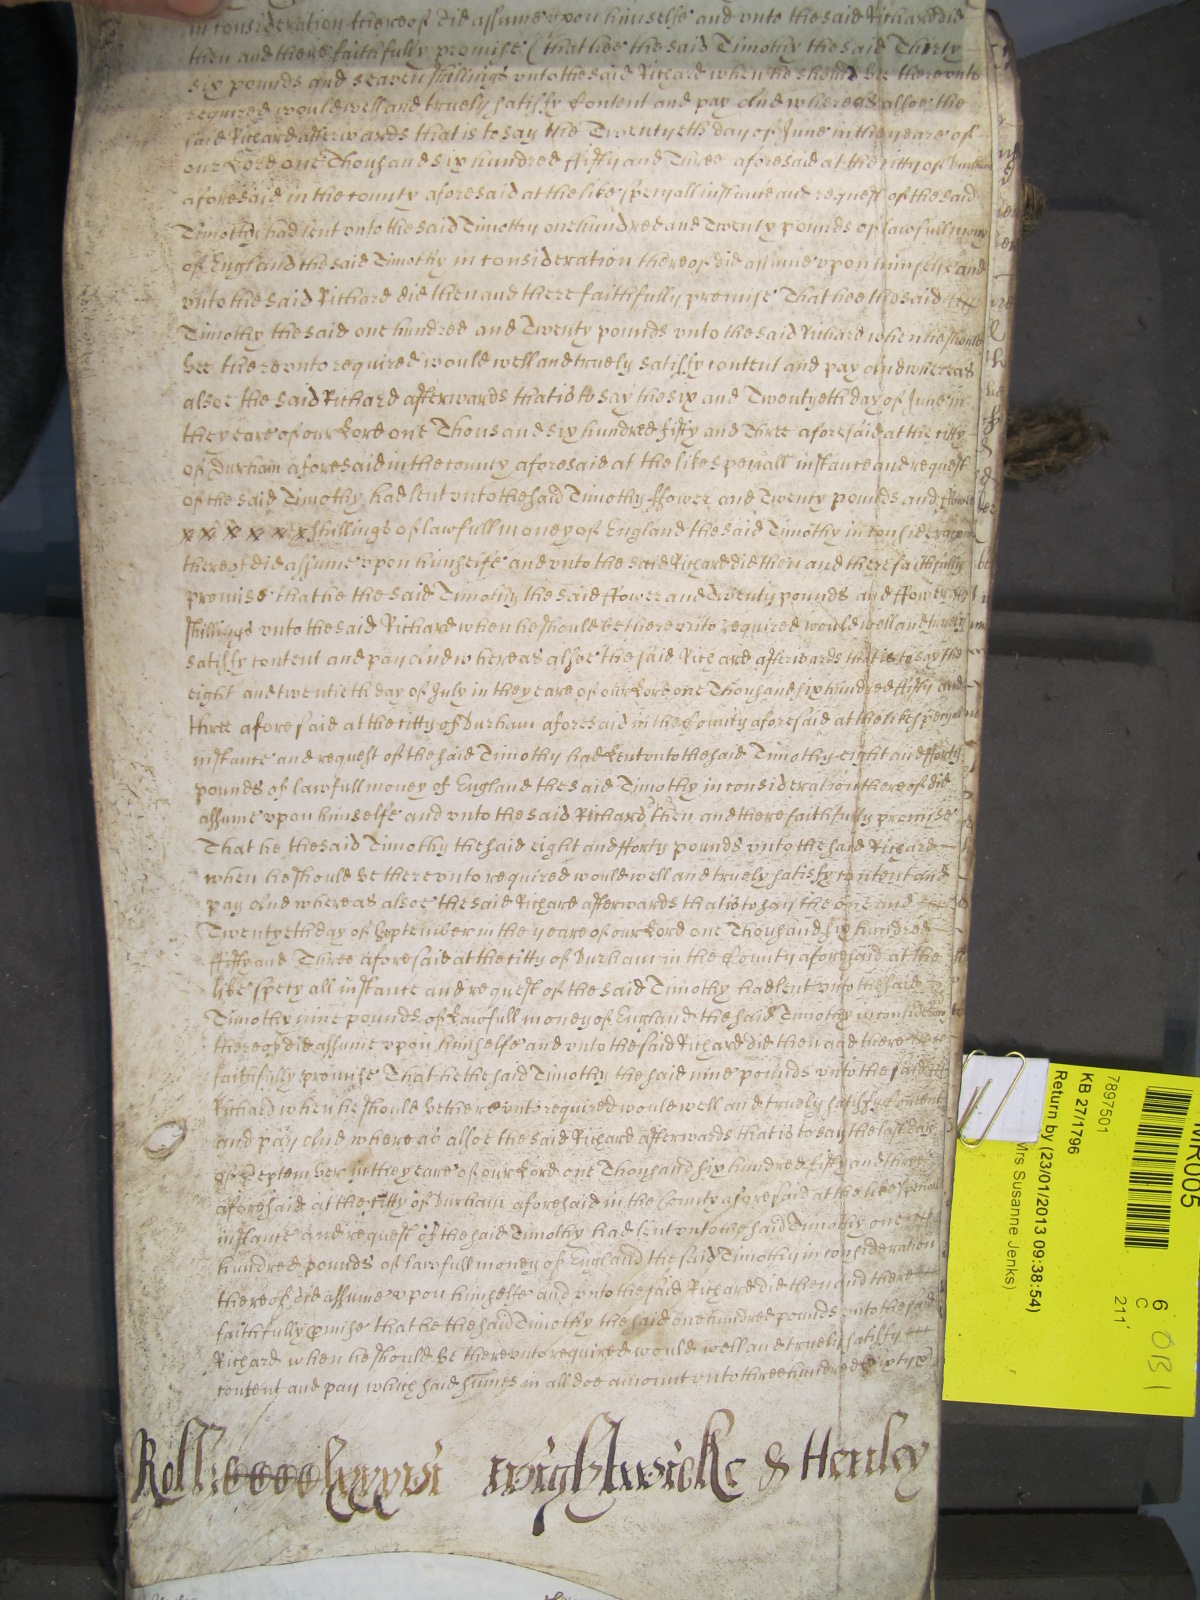 in consideration thereof did assume upon himselfe and unto the said Richard did
then and there faithfully promise (that hee the said Timothy the said Thirty
six pounds and seaven shillings unto the said Richard when he should bee thereunto
required would well and truely satisfy Content and pay And whereas alsoe the
said Richard afterwards that is to say the Twentyeth day of June in the yeare of
our Lord one Thousand six hundred ffifty and Three aforesaid at the citty of Durham
aforesaid in the county aforesaid at the like speciall instance and request of the said
Timothy had lent unto the said Timothy one hundred and Twenty pounds of lawfull mony
of England the said Timothy in consideration thereof did assume upon himselfe and
unto the said Richard did then and there faithfully promise That hee the said
Timothy the said one hundred and Twenty pounds unto the said Richard when he should
bee thereunto required would well and truely satisfy content and pay And whereas
alsoe the said Richard afterwards that is to say the six and Twentyeth day of June in
the yeare of our Lord one Thousand six hundred fifty and Three aforesaid at the citty
of Durham aforesaid in the county aforesaid at the like speciall instance and request
of the said Timothy had lent unto the said Timothy ffower and Twenty pounds and ffower
x x x x x x shillings of lawfull money of England the said Timothy in consideration
thereof did assume upon himselfe and unto the said Richard did then and there faithfully
promise that he the said Timothy the said ffower and Twenty pounds and ffower
shillings unto the said Richard when he should be thereunto required would well and truely
satisfy content and pay And whereas alsoe the said Richard afterwards that is to say the
eight and twentieth day of July in the yeare of our Lord one Thousand six hundred ffifty and
three aforesaid at the citty of Durham aforesaid in the County aforesaid at the like speciall
instance and request of the said Timothy had Lent unto the said Timothy eight and fforty
pounds of lawfull money of England the said Timothy in consideration thereof did
assume upon himselfe and unto the said Richard then and there faithfully promise
That he the said Timothy the said eight and fforty pounds unto the said Richard
when he should be thereunto required would well and truely satisfy content and
pay And whereas alsoe the said Richard afterwards that is to say the one and
Twentyeth day of September in the yeare of our Lord one Thousand six hundred
ffifty and Three aforesaid at the citty of Durham in the County aforesaid at the
like speciall instance and request of the said Timothy had lent unto the said
Timothy nine pounds of Lawfull money of England the said Timothy in consideration
thereof did assume upon himselfe and unto the said Richard did then and there
faithfully promise That he the said Timothy the said nine pounds unto the said
Richard when he should be thereunto required would well and truely satisfy Content
and pay And whereas alsoe the said Richard afterwards that is to say the last day
of September in the yeare of our Lord one Thousand six hundred fifty and three
aforesaid at the Citty of Durham aforesaid in the County aforesaid at the like speciall
instance and request of the said Timothy had lent unto the said Timothy one
hundred pounds of lawfull money of England the said Timothy in consideration
thereof did assume upon himselfe and unto the said Richard did then and there
faithfully pmise that he the said Timothy the said one hundred pounds unto the said
Richard when he should be thereunto required would well and truely satisfy
content and pay which said sumes in all doe amount unto three hundred
Roll lxxvi wightwicke & Henley
MR005
7897501
KB 27/1796
Return by (23/01/2013 09:38:54)
Mrs Susanne Jenks)
6
C
211